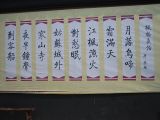 楓橋夜泊
月落烏啼
霜滿天
江楓漁火
對愁眠
姑蘇城外
寒山寺
夜半鐘聲
到客船